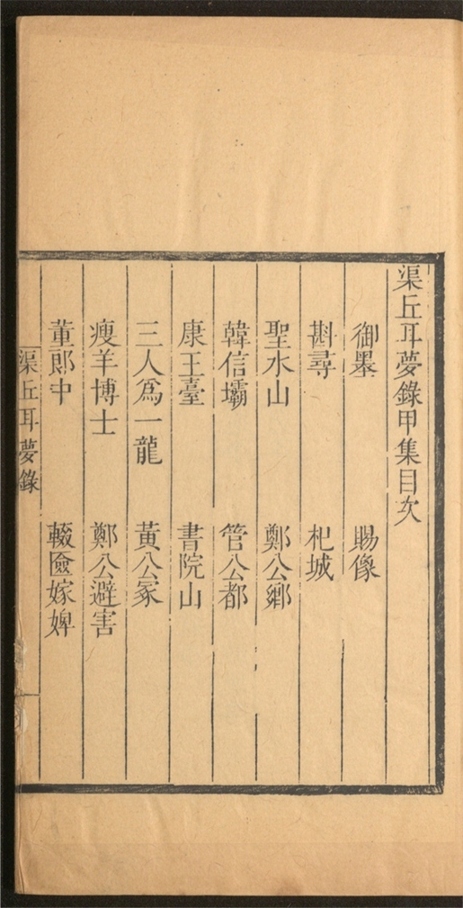 渠丘耳夢錄甲集目次
御墨 賜像
斟尋 杞城
聖水山 鄭公鄉
韓信壩 管公都
康王臺 書院山
三人爲一龍 黃公冢
瘦羊博士 鄭公避害
董郎中 輟奩嫁婢
渠丘耳夢錄